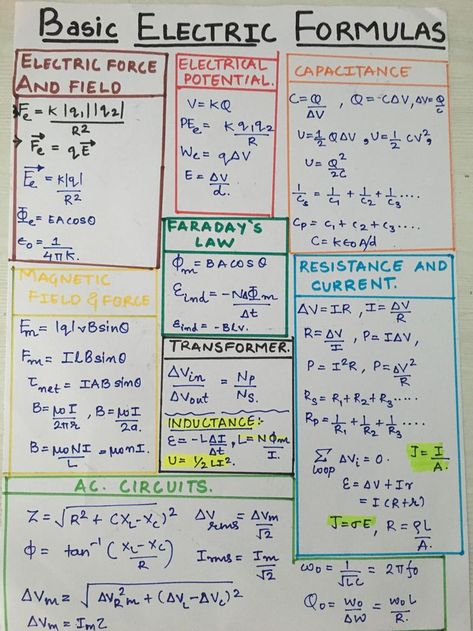 Basic Electric Formulas
Electric Force And Field
Fe = K|q1||q2| / R²
Fe = qE
Ee = K|q| / R²
Φe = EA cosθ
ε0 = 1 / 4πK.
Electrical Potential.
V = KQ
PEe = K q1q2 / R
We = qΔV
E = ΔV / d.
Capacitance
C = Q / ΔV , Q = CΔV, ΔV = Q / C
U = 1/2 QΔV , U = 1/2 CV²,
U = Q² / 2C
1/Cs = 1/C1 + 1/C2 + 1/C3 ....
Cp = C1 + C2 + C3 ....
C = Kε0 A/d
Faraday's Law
Φm = BA cosθ
Eind = -NΔΦm / Δt
Eind = -BLv.
Magnetic Field & Force
Fm = |q|vB sinθ
Fm = ILB sinθ
τnet = IAB sinθ
B = μ0I / 2πr , B = μ0I / 2a.
B = μ0NI / L = μ0nI.
Transformer.
ΔVin / ΔVout = Np / Ns.
Inductance:-
E = -LΔI / Δt , L = NΦm / I.
U = 1/2 LI².
Resistance and Current.
ΔV = IR , I = ΔV / R
R = ΔV / I , P = IΔV,
P = I²R , P = ΔV² / R
Rs = R1 + R2 + R3 ....
Rp = 1/R1 + 1/R2 + 1/R3 ....
Σloop ΔVi = 0. J = I / A.
E = ΔV + Ir
= I(R+r)
J = σE , R = ρL / A.
AC. Circuits.
Z = √R² + (XL - Xc)² ΔVrms = ΔVm / √2
Φ = tan⁻¹ (XL - Xc / R) Irms = Im / √2
ΔVm = √ΔVR²m + (ΔVL - ΔVc)²
ΔVm = ImZ
ω0 = 1 / √LC = 2πf0
Q0 = ω0 / Δω = ω0L / R